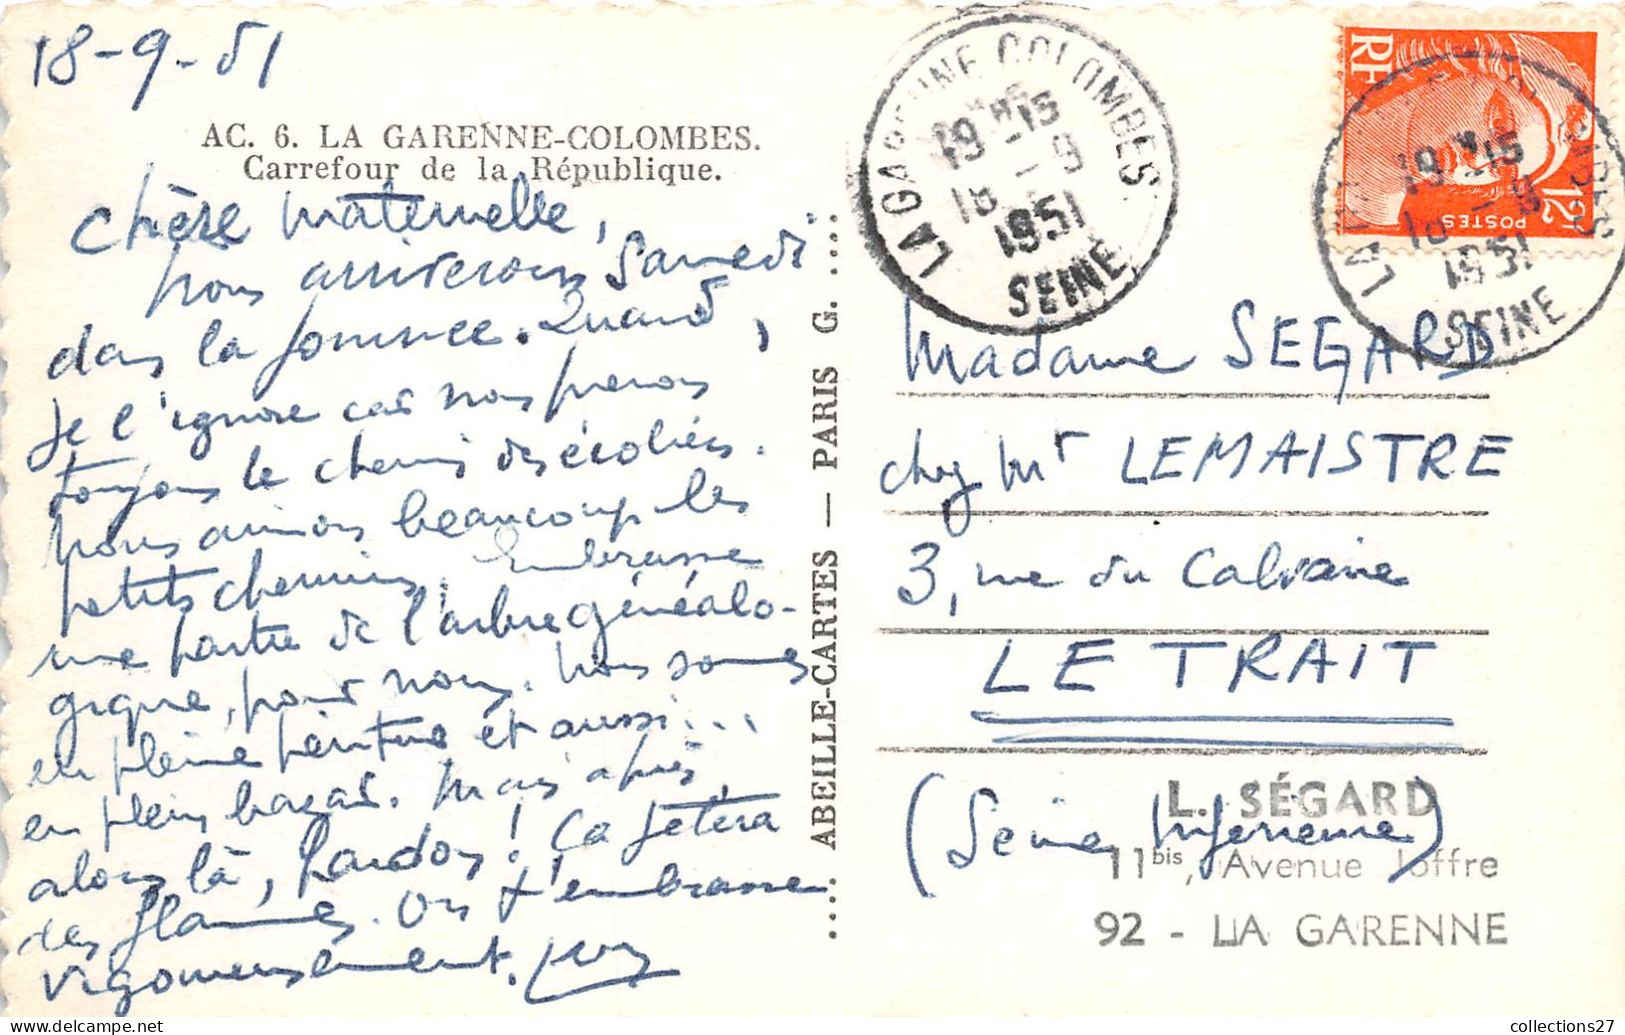 18-9-51
AC. 6. LA GARENNE-COLOMBES.
Carrefour de la République.
chère maternelle,
nous arriverons Samedi
dans la journée. Quand,
je l'ignore car nous prenons
toujours le chemin des écoliers.
nous aimons beaucoup les
petits chemins. Embrasse
une partie de l'arbre généalo-
gique, pour nous. Nous sommes
en pleine peinture et aussi...
en plein bazar. Mais après,
alors là, pardon! Ca jetera
des flammes. On t'embrasse
vigoureusement.
.... ABEILLE-CARTES — PARIS G. ....
LA GARENNE COLOMBES
19 H 15
18 - 9
1951
SEINE
RF
POSTES
12F
19 H 15
18 - 9
1951
SEINE
Madame SEGARD
chez Mr LEMAISTRE
3, rue du Calvaire
LE TRAIT
(Seine Inferieure)
L. SÉGARD
11bis, Avenue Joffre
92 - LA GARENNE
collections27